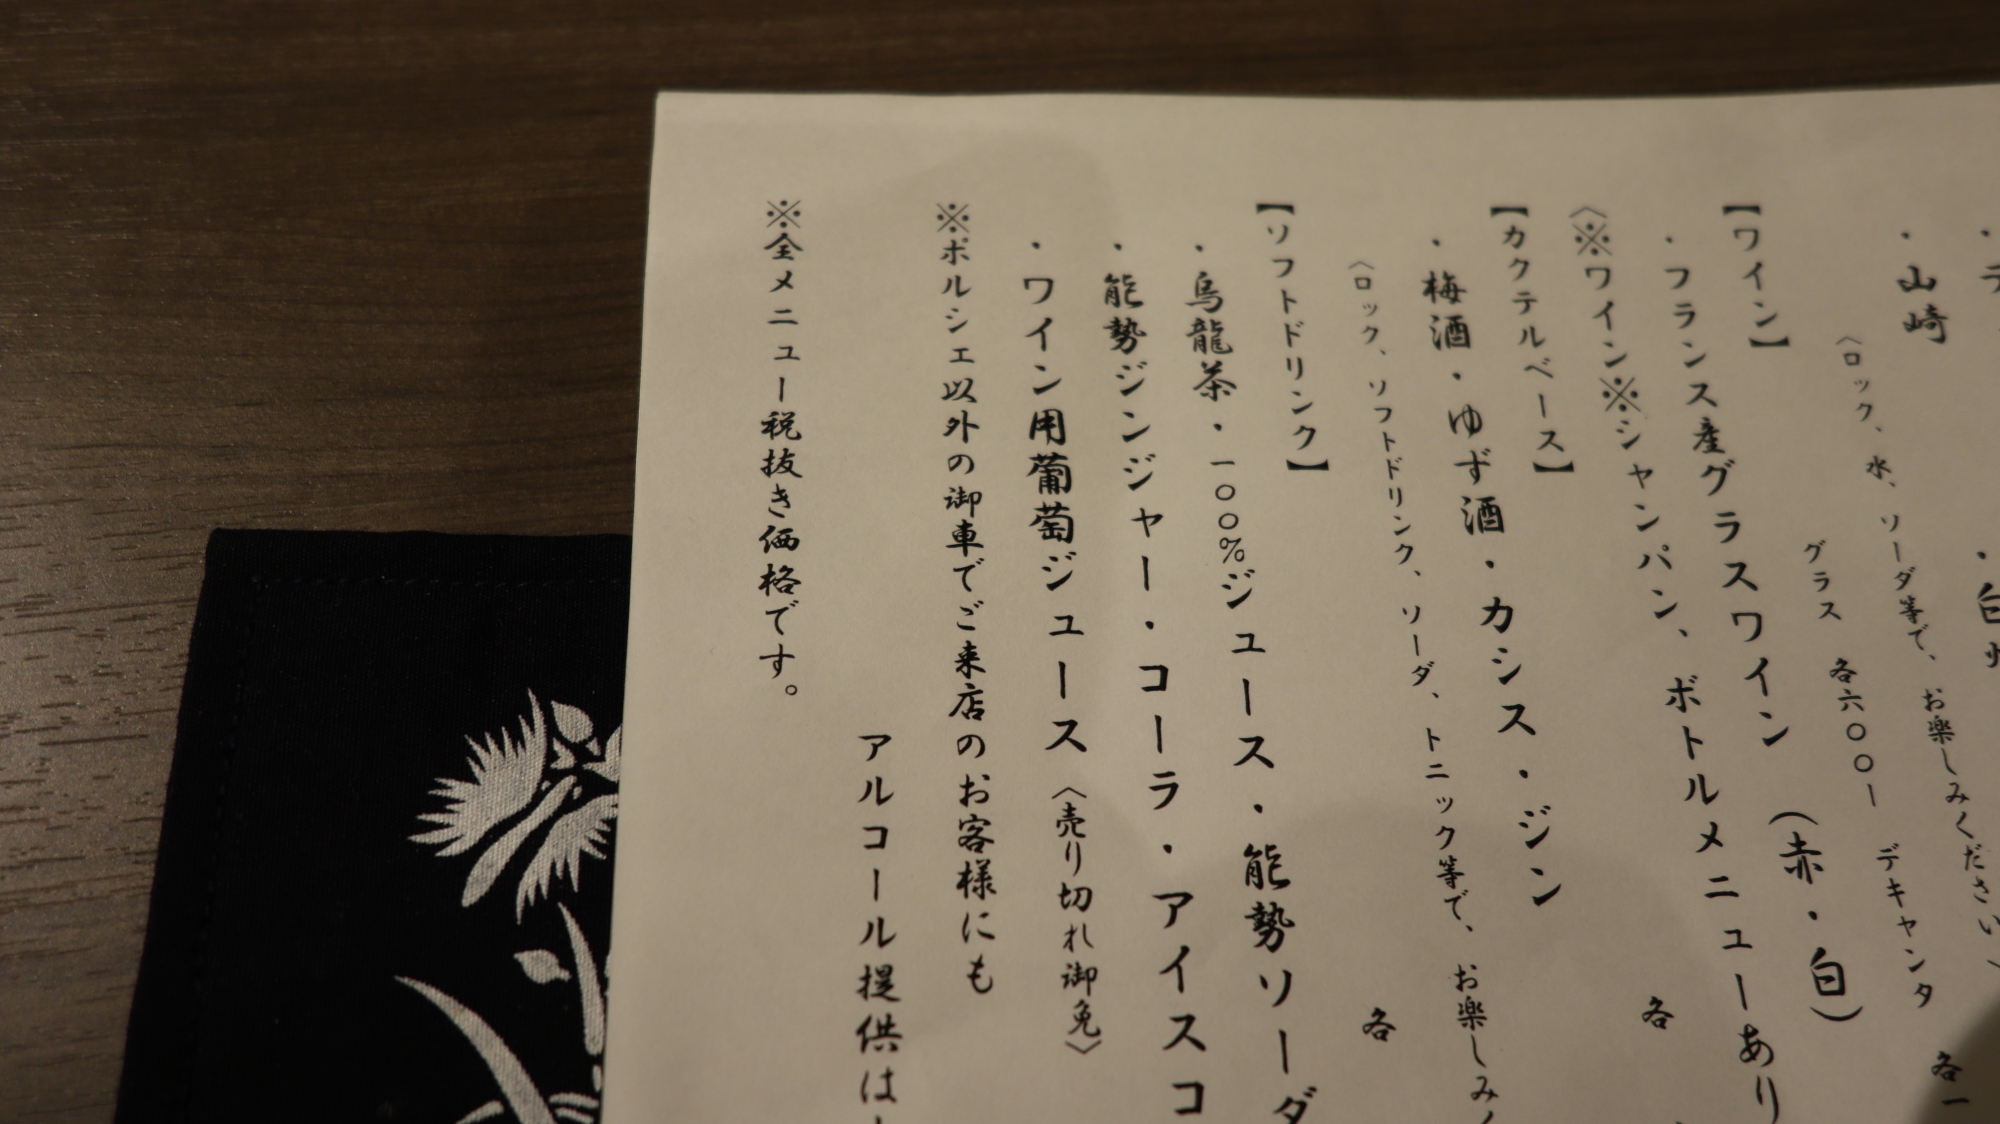 ・山崎
・白州
〈ロック、水、ソーダ等で、お楽しみください〉
グラス 各六〇〇ー デキャンタ 各一
【ワイン】
・フランス産グラスワイン（赤・白）
〈※ワイン※シャンパン、ボトルメニューあり
各
【カクテルベース】
・梅酒・ゆず酒・カシス・ジン
〈ロック、ソフトドリンク、ソーダ、トニック等で、お楽しみ
各
【ソフトドリンク】
・烏龍茶・一〇〇%ジュース・能勢ソーダ
・能勢ジンジャー・コーラ・アイスコ
・ワイン用葡萄ジュース〈売り切れ御免〉
※ポルシェ以外の御車でご来店のお客様にも
アルコール提供は
※全メニュー税抜き価格です。